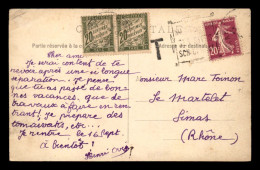 CARTE POSTALE
Partie réservée à la co
Adresse du destinataire
20
20
T
20c
Cher ami
Je serai content de te
revoir après une si longue
séparation. Je pense
que tu as passé de bonnes
vacances, que de
travaux à faire en ren-
trant! Je prépare des
Je rentre le 16 Sept.
à bientôt!
Monsieur Marc
Le Martelet
Limas
(Rhône)